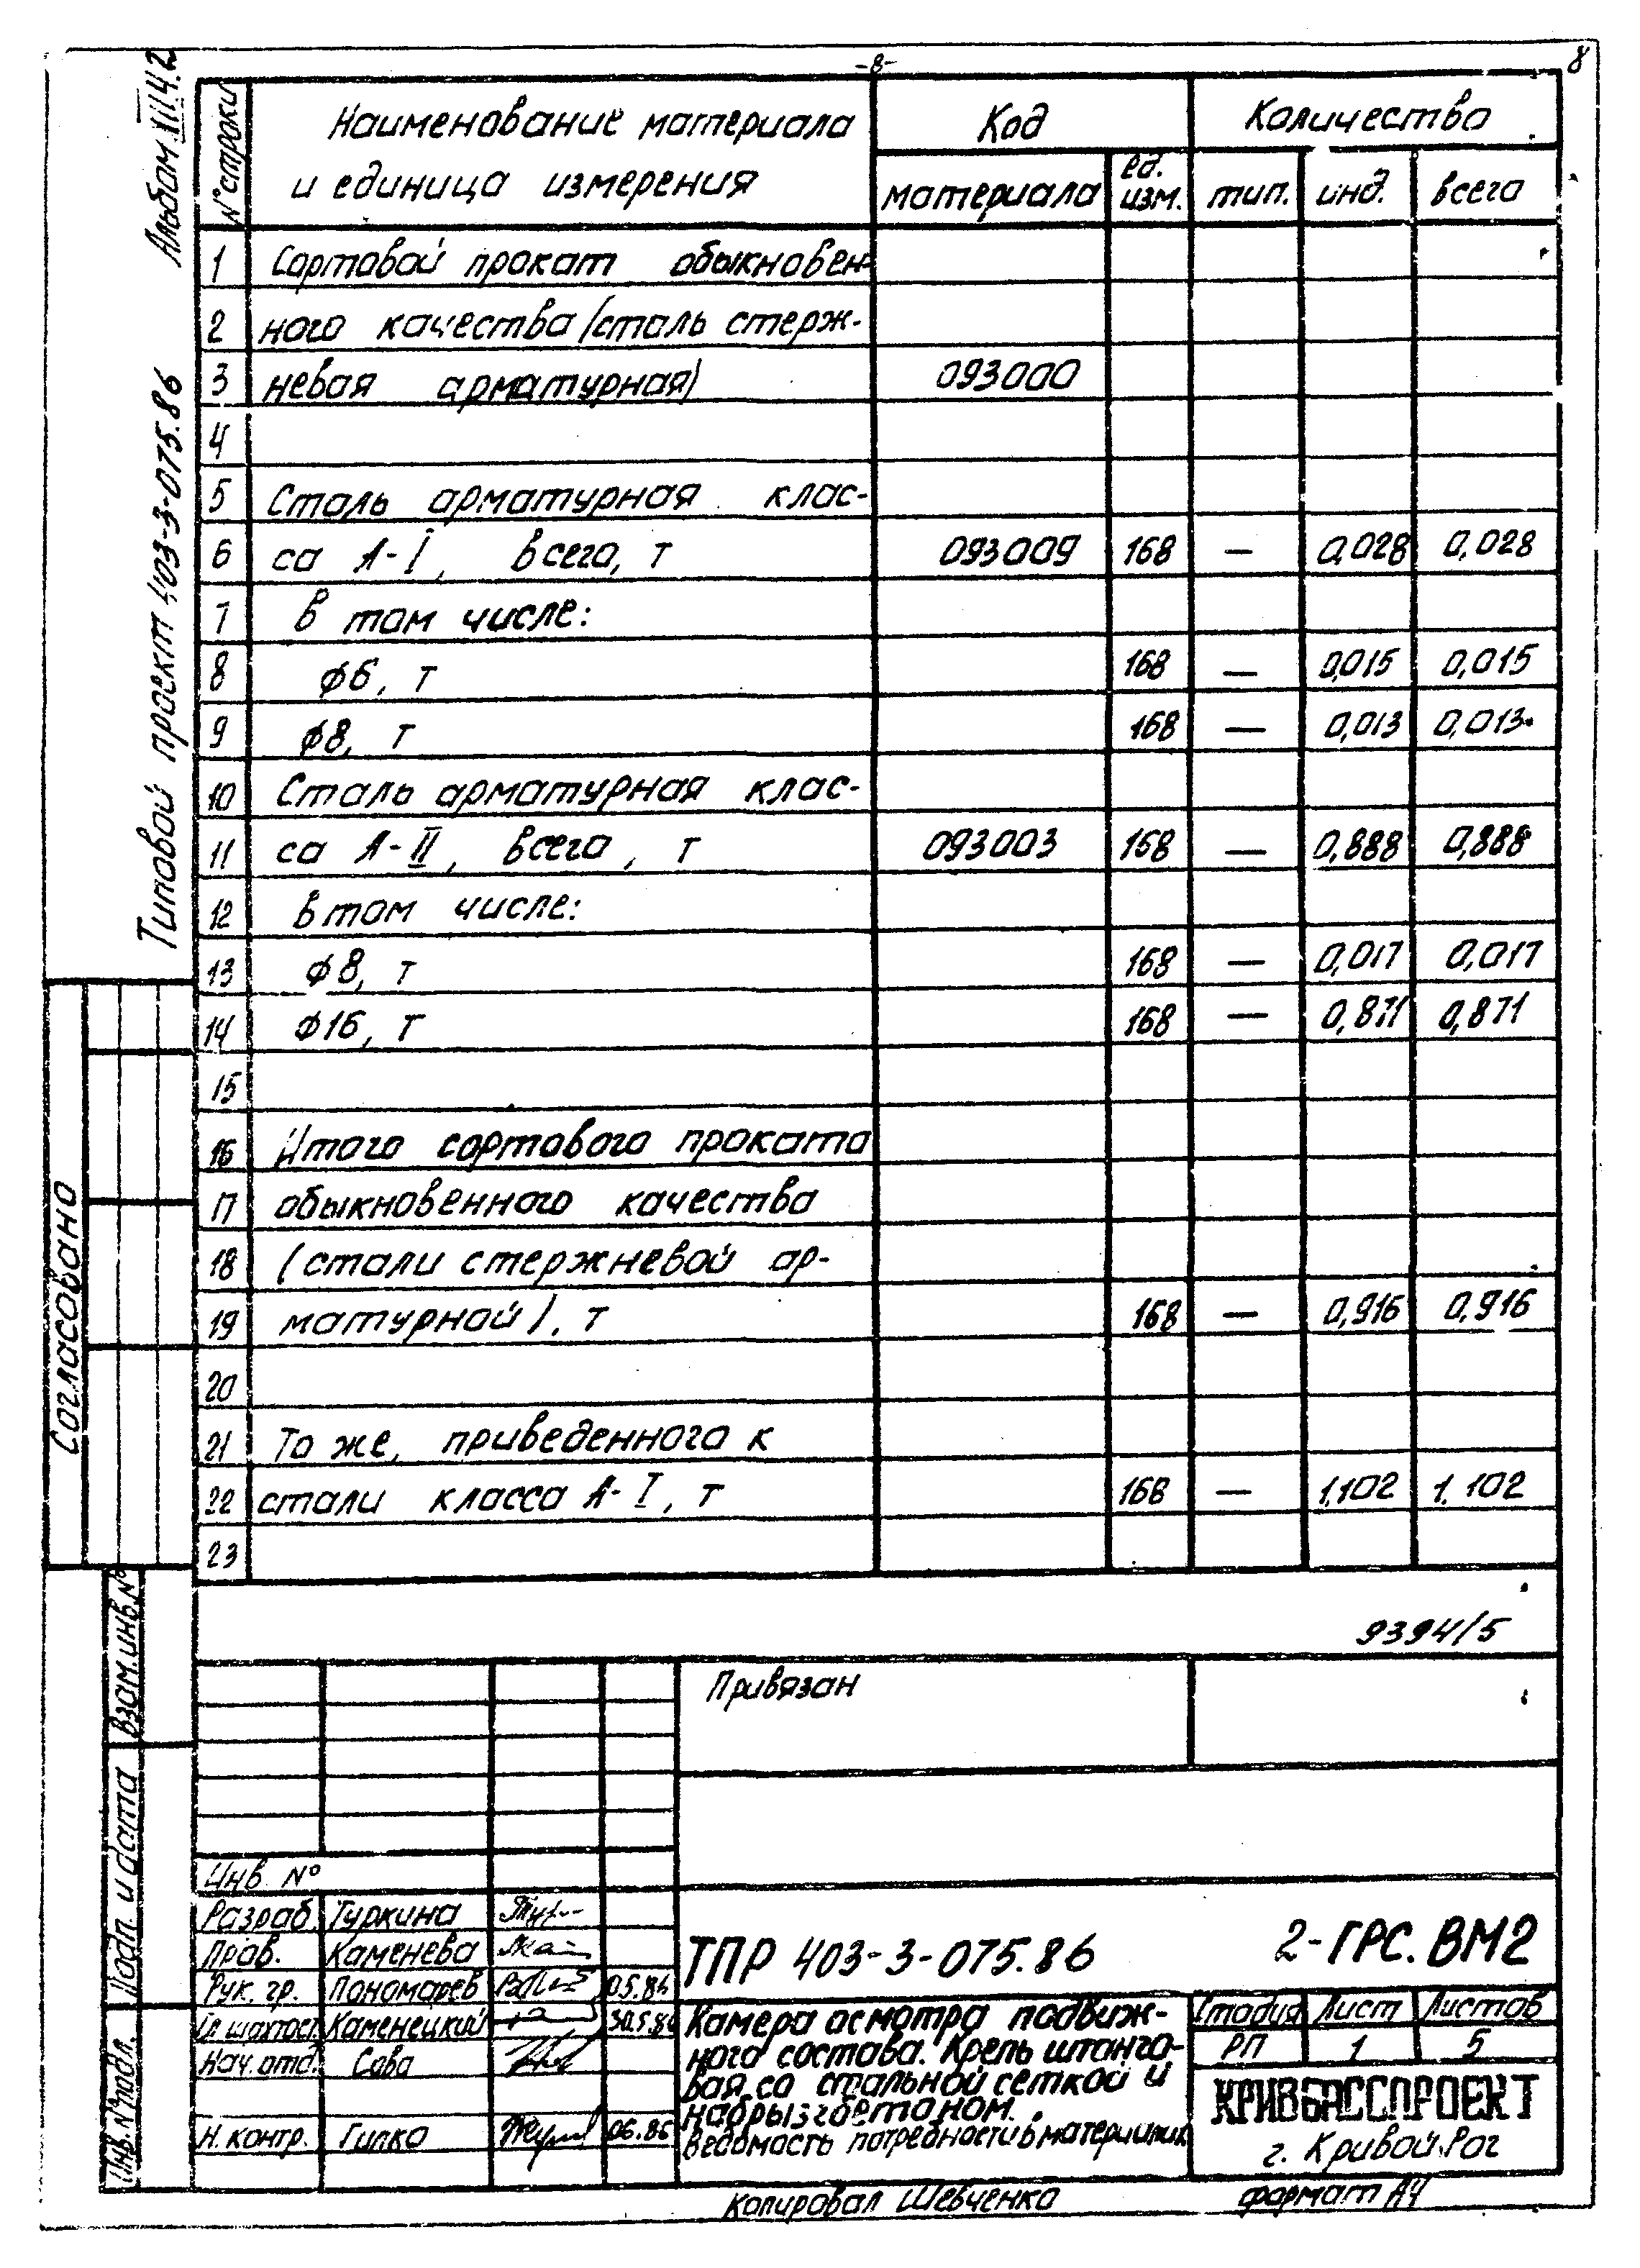 -8-
8
Альбом XII Ч.2
Типовой проект 403-3-075.86
№ строки
Наименование материала и единица измерения
Код
Количество
материала
ед. изм.
тип.
инд.
всего
1 Сортовой прокат обыкновен-
2 ного качества (сталь стерж-
3 невая арматурная) 093000
4
5 Сталь арматурная клас-
6 са А-I, всего, т 093009 168 — 0,028 0,028
7 в том числе:
8 ф6, т 168 — 0,015 0,015
9 ф8, т 168 — 0,013 0,013
10 Сталь арматурная клас-
11 са А-II, всего, т 093003 168 — 0,888 0,888
12 в том числе:
13 ф8, т 168 — 0,017 0,017
14 ф16, т 168 — 0,871 0,871
15
16 Итого сортового проката
17 обыкновенного качества
18 (стали стержневой ар-
19 матурной), т 168 — 0,916 0,916
20
21 То же, приведенного к
22 стали класса А-I, т 168 — 1,102 1.102
23
Согласовано
Взам.инв.№
Подп. и дата
Инв.№подл.
9394/5
Привязан
Инв. №
Разраб. Туркина
Пров. Каменева
Рук. гр. Пономарев 05.86
Гл шахтост. Каменецкий 30.5.86
Нач.отд. Сова
Н. контр. Гипко 06.86
ТПР 403-3-075.86 2-ГРС.ВМ2
Камера осмотра подвиж-
ного состава. Крепь штанго-
вая со стальной сеткой и
набрызгбетоном.
Ведомость потребности в материалах
Стадия Лист Листов
РП 1 5
КРИВБАССПРОЕКТ
г. Кривой Рог
Копировал Шевченко
формат А4